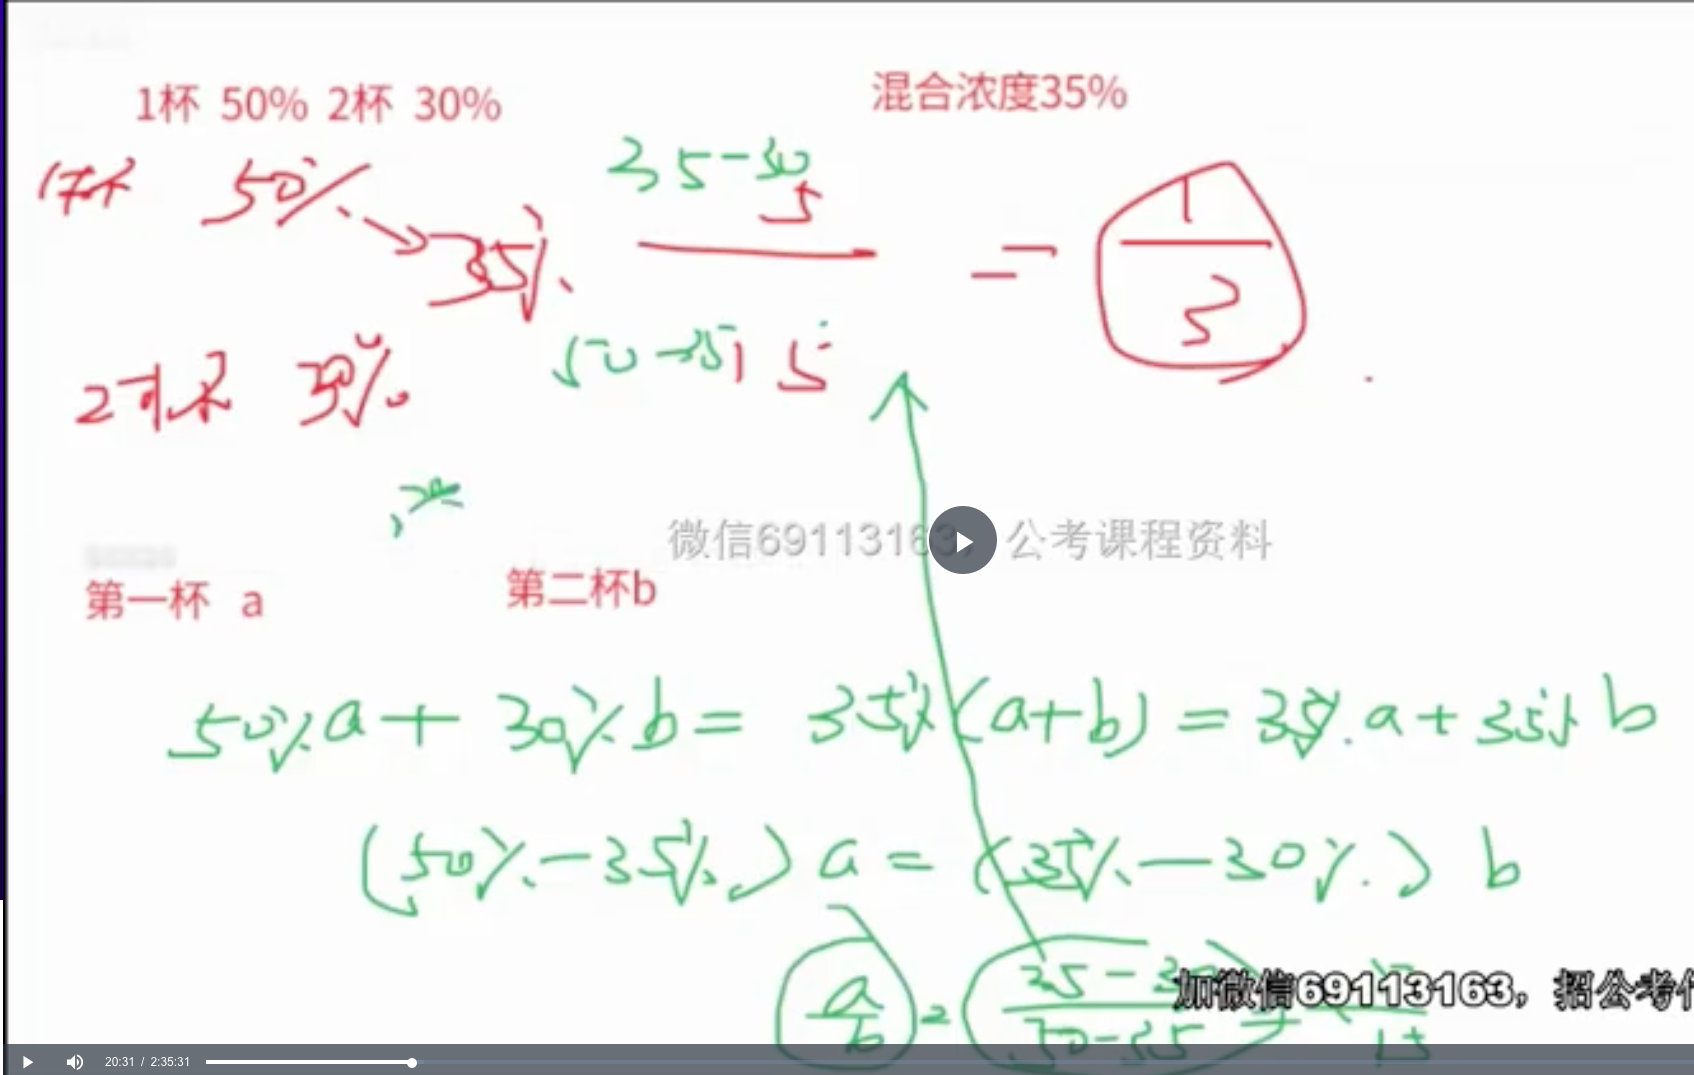 1杯 50% 2杯 30%
混合浓度35%
1杯 50%
35-30
5
35%
=
1
3
50-35 15
2杯 30%
微信69113163，公考课程资料
第一杯 a
第二杯b
50%a + 30%b = 35%(a+b) = 35%a + 35%b
(50%-35%)a = (35%-30%)b
a
b
=
35-30
50-35
=
15
加微信69113163，招公考
20:31 / 2:35:31